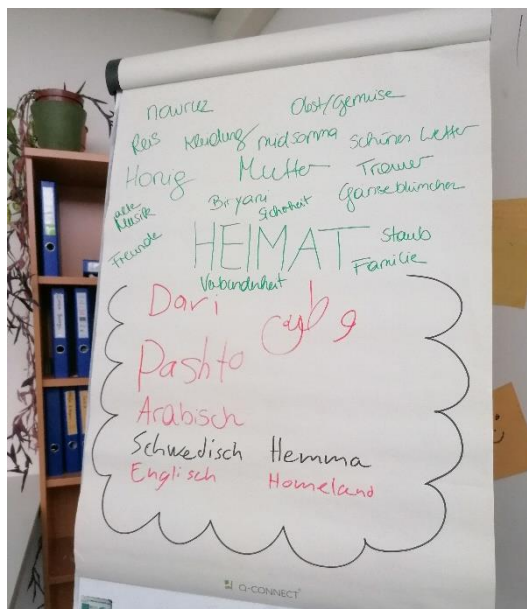 nawruz Obst/Gemüse
Reis Kleidung midsomma schönes Wetter
Honig Mutter Trauer
alte Musik Biryani Sicherheit Gänseblümchen
Freunde HEIMAT Staub
Familie
Verbundenheit
Dari وطن
Pashto
Arabisch
Schwedisch Hemma
Englisch Homeland
Q-CONNECT